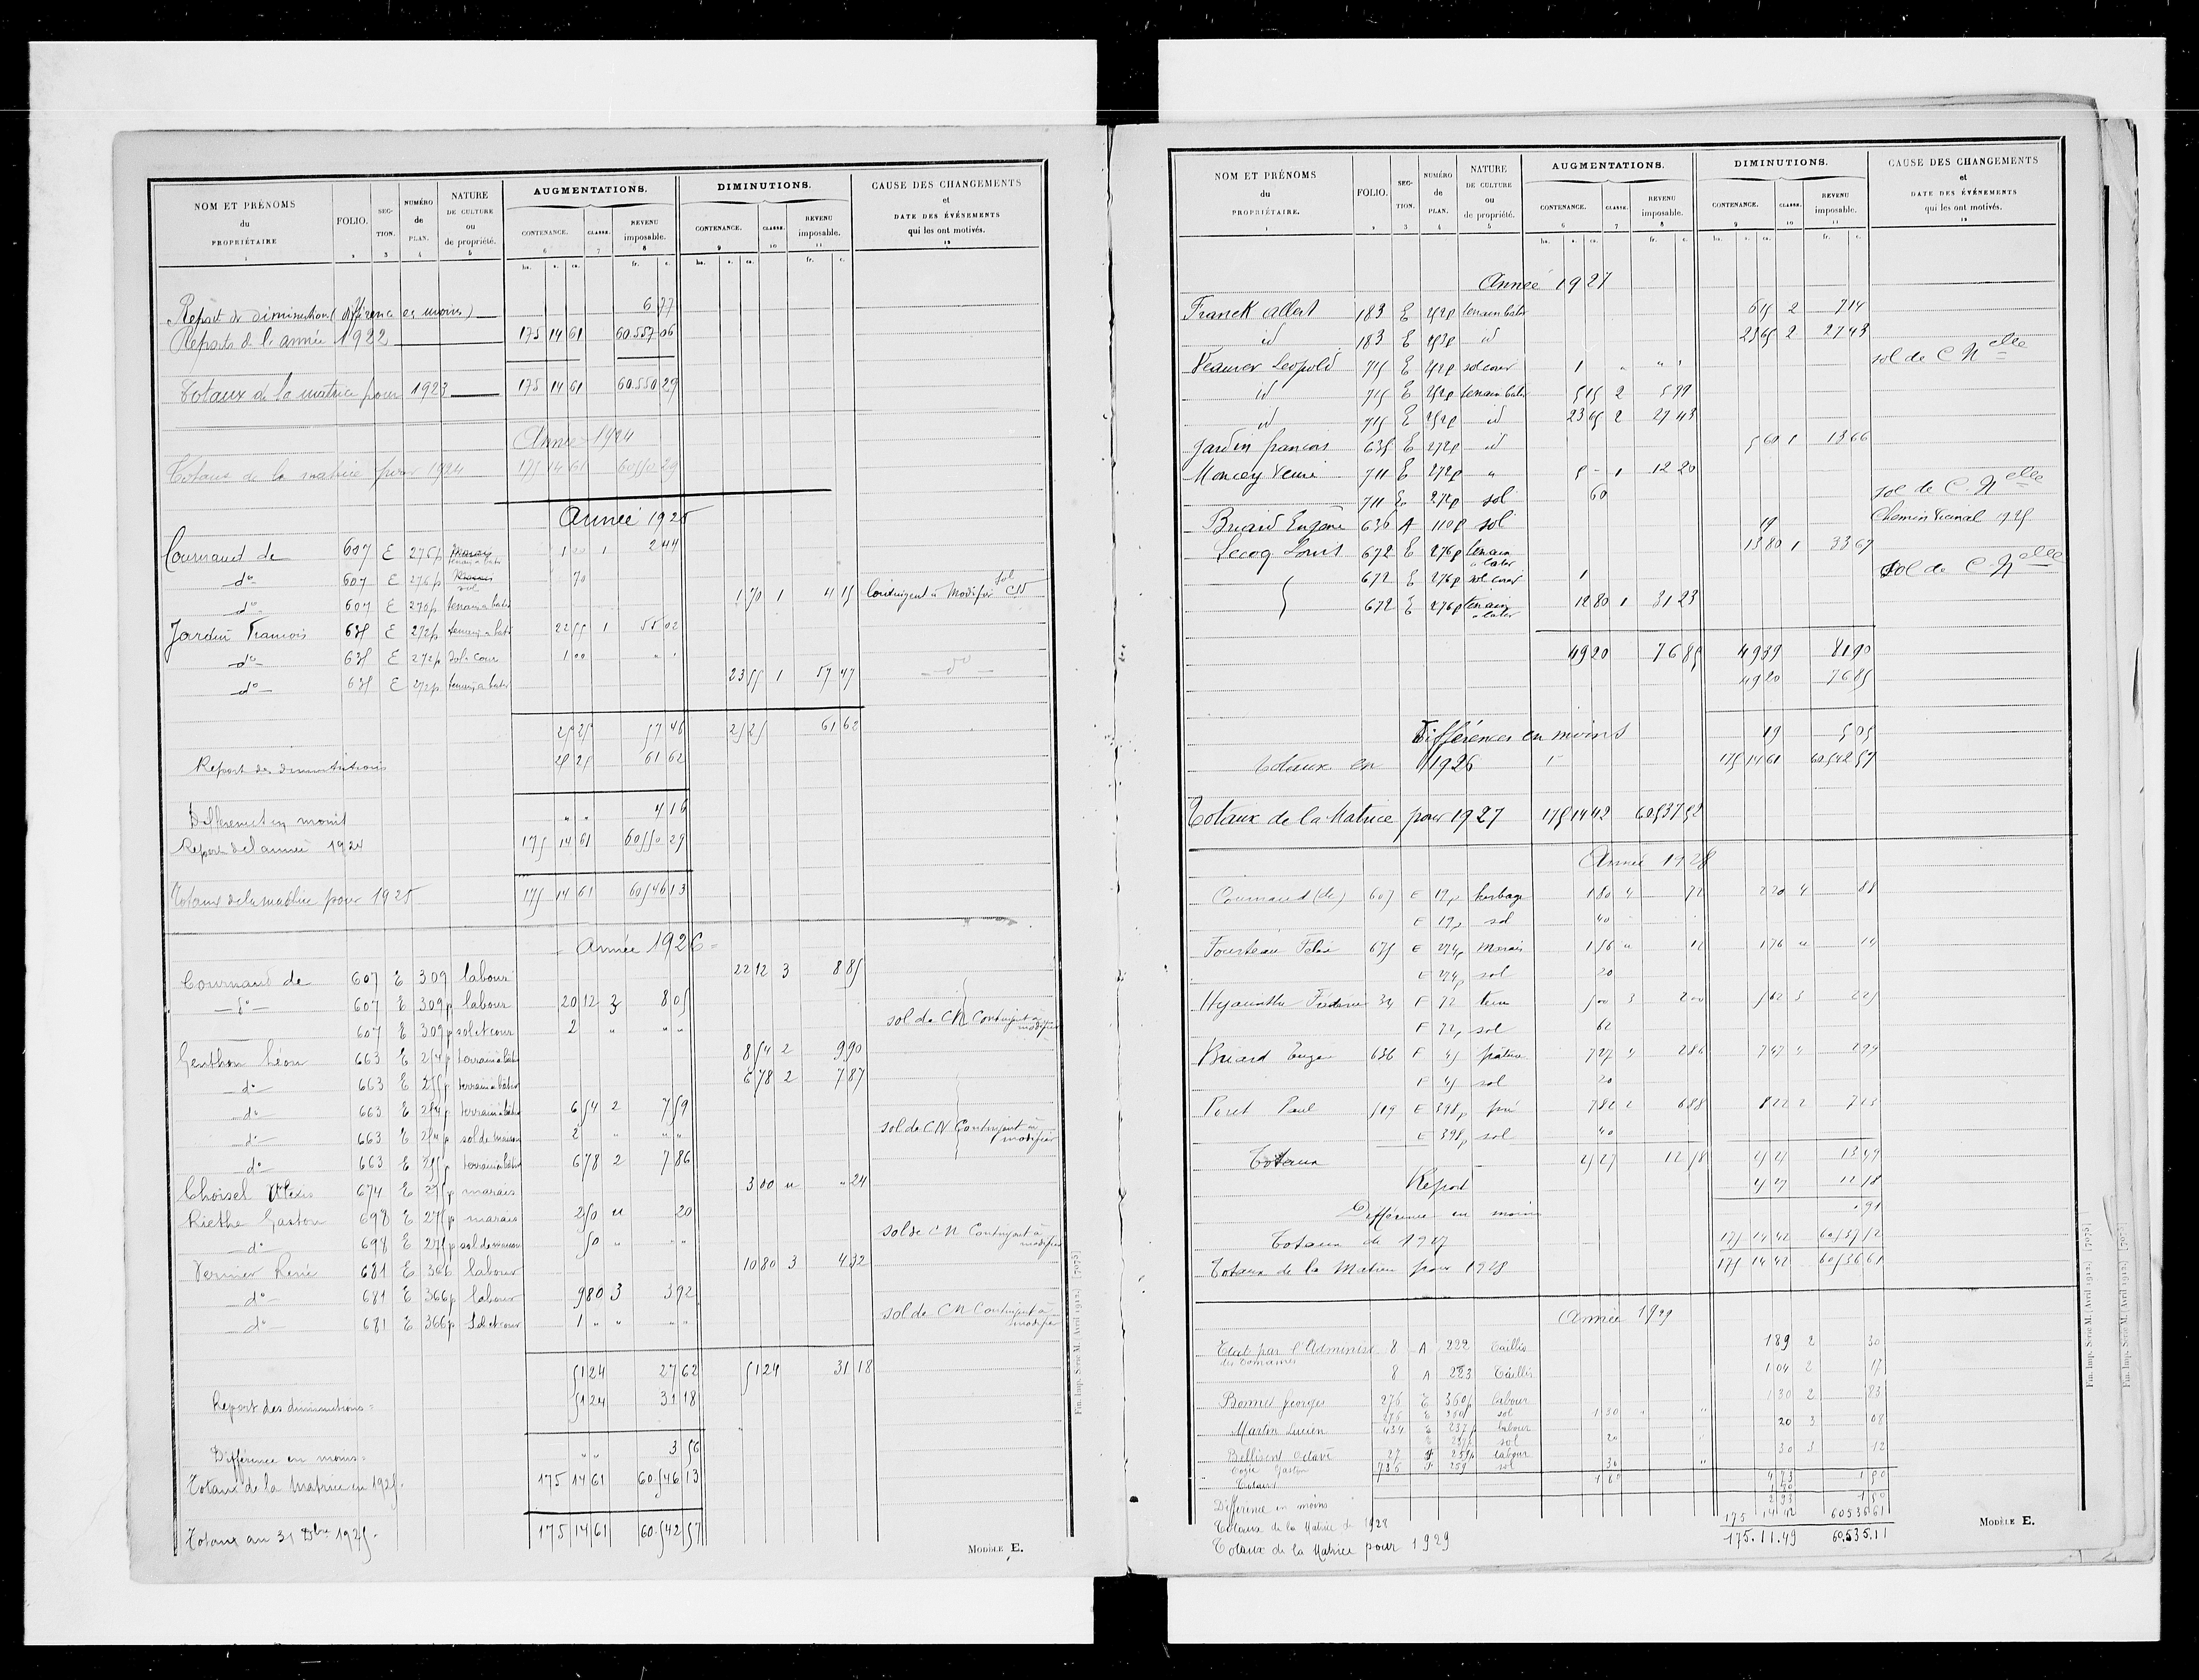 NOM ET PRÉNOMS du PROPRIÉTAIRE 1 | FOLIO. 2 | SECTION. 3 | NUMÉRO de PLAN. 4 | NATURE DE CULTURE ou de propriété. 5 | AUGMENTATIONS. CONTENANCE. 6 CLASSE. 7 REVENU imposable. 8 | DIMINUTIONS. CONTENANCE. 9 CLASSE. 10 REVENU imposable. 11 | CAUSE DES CHANGEMENTS et DATE DES ÉVÉNEMENTS qui les ont motivés. 12
ha. a. ca. fr. c. ha. a. ca. fr. c.
Report de diminution (différence en moins) 6 77
Reports de l'année 1922 175 14 61 60.557 06
Totaux de la matrice pour 1923 175 14 61 60.550 29
Année 1924
Totaux de la matrice pour 1924 175 14 61 60550 29
Année 1925
Cournaud de 607 E 276p terrain a batir 1 00 1 2 44
d° 607 E 276p sol 70
d° 607 E 276p terrain a batir 1 70 1 4 15 Contingent à Modifier sol CN
Jardin Francois 635 E 272p terrain a batir 22 55 1 55 02
d° 635 E 272p sol. cour 1 00 " "
d° 635 E 272p terrain a batir 23 55 1 57 47 d°
25 25 57 46 25 25 61 62
Report des diminutions 25 25 61 62
Différence en moins " " 4 16
Report de l'année 1924 175 14 61 60550 29
Totaux de la matrice pour 1925 175 14 61 60546 13
Année 1926
Cournaud de 607 E 309 labour 22 12 3 8 85
d° 607 E 309p labour 20 12 3 8 05
607 E 309p sol et cour 2 " " " sol de CN Contingent à modifier
Genthon Léon 663 E 254p terrain a batir 8 54 2 9 90
d° 663 E 255p terrain a batir 6 78 2 7 87
d° 663 E 254p terrain a batir 6 54 2 7 59
d° 663 E 254p sol de maison 2 " " " sol de CN Contingent à modifier
d° 663 E 255p terrain a batir 6 78 2 7 86
Choisel Alexis 674 E 275p marais 3 00 u " 24
Riethe Gaston 698 E 275p marais 2 50 u 20
d° 698 E 275p sol de maison 50 " " " sol de CN Contingent à modifier
Vernier René 681 E 366 labour 10 80 3 4 32
d° 681 E 366p labour 9 80 3 3 92
d° 681 E 366p Sol et cour 1 " " " " sol de CN Contingent à modifier
51 24 27 62 51 24 31 18
Report des diminutions = 51 24 31 18
Différence en moins = " " 3 56
Totaux de la Matrice en 1925. 175 14 61 60.546 13
Totaux au 31 Dbre 1925. 175 14 61 60.542 57
MODÈLE E.
Fin. Imp. Série M. [Avril 1912.] [7075]
NOM ET PRÉNOMS du PROPRIÉTAIRE. 1 | FOLIO. 2 | SECTION. 3 | NUMÉRO de PLAN. 4 | NATURE DE CULTURE ou de propriété. 5 | AUGMENTATIONS. CONTENANCE. 6 CLASSE. 7 REVENU imposable. 8 | DIMINUTIONS. CONTENANCE. 9 CLASSE. 10 REVENU imposable. 11 | CAUSE DES CHANGEMENTS et DATE DES ÉVÉNEMENTS qui les ont motivés. 12
ha. a. ca. fr. c. ha. a. ca. fr. c.
Année 1927
Franck Albert 183 E 252p terrain batir 6 15 2 7 14
id 183 E 252p id 23 65 2 27 43
Leopold 715 E 252p sol cour 1 " " " sol de C Nelle
id 715 E 252p terrain batir 5 15 2 5 97
id 715 E 252p id 23 65 2 27 43
Jardin francois 635 E 272p id 5 60 1 13 66
Moncey Veuve 711 E 272p " 5 - 1 12 20
711 E 272p sol 60 sol de C. Nelle
Briard Eugène 636 A 110p sol 19 Chemin Vicinal 1925
Lecoq Louis 672 E 276p terrain a batir 13 80 1 33 67
672 E 276p sol cour 1 Sol de C Nelle
672 E 276p terrain a batir 12 80 1 31 23
49 20 76 85 49 39 81 90
49 20 76 85
Différences en moins 19 5 05
Totaux en 1926 175 14 61 60542 57
Totaux de la Matrice pour 1927 175 14 42 60537 52
Année 1928
Cournaud (de) 607 E 12p herbage 1 80 4 72 2 20 4 88
E 12p sol 40
Fourteau 675 E 274p Marais 1 56 u 12 1 76 u 14
E 274p sol 20
Hyacinthe 34 F 72 5 00 3 2 00 5 62 3 2 25
F 72p sol 62
Briard 636 F 45 pature 7 27 4 2 86 7 47 4 2 94
F 45 sol 20
Poret Paul 519 E 398p pré 7 82 2 6 88 8 22 2 7 23
E 398p sol 40
Totaux 12 58 13 49
Report 12 58
Différence en moins " 91
Totaux de 1927 175 14 42 60537 52
Totaux de la Matrice pour 1928 175 14 42 60536 61
Année 1929
par l'Administ des Domaines 8 A 222 Taillis 1 89 2 30
8 A 223 Taillis 1 04 2 17
Bonnet Georges 276 E 360p labour 1 30 2 83
276 E 360p sol 1 30 "
Martin Lucien 434 E 237p labour 20 3 08
E 237p sol 20
Bellisent Octave 27 F 259p labour 30 3 12
Gaston 786 F 259 sol 30 "
Totaux 1 80 4 73 1 50
1 80
Différence en moins 2 93 1 50
Totaux de la Matrice de 1928 175 14 42 60536 61
Totaux de la Matrice pour 1929 175.11.49 60.535.11
MODÈLE E.
Fin. Imp. Série M. [Avril 1912.] [7075]
Fin. Imp. Série M. [Avril 1912.] [7075]